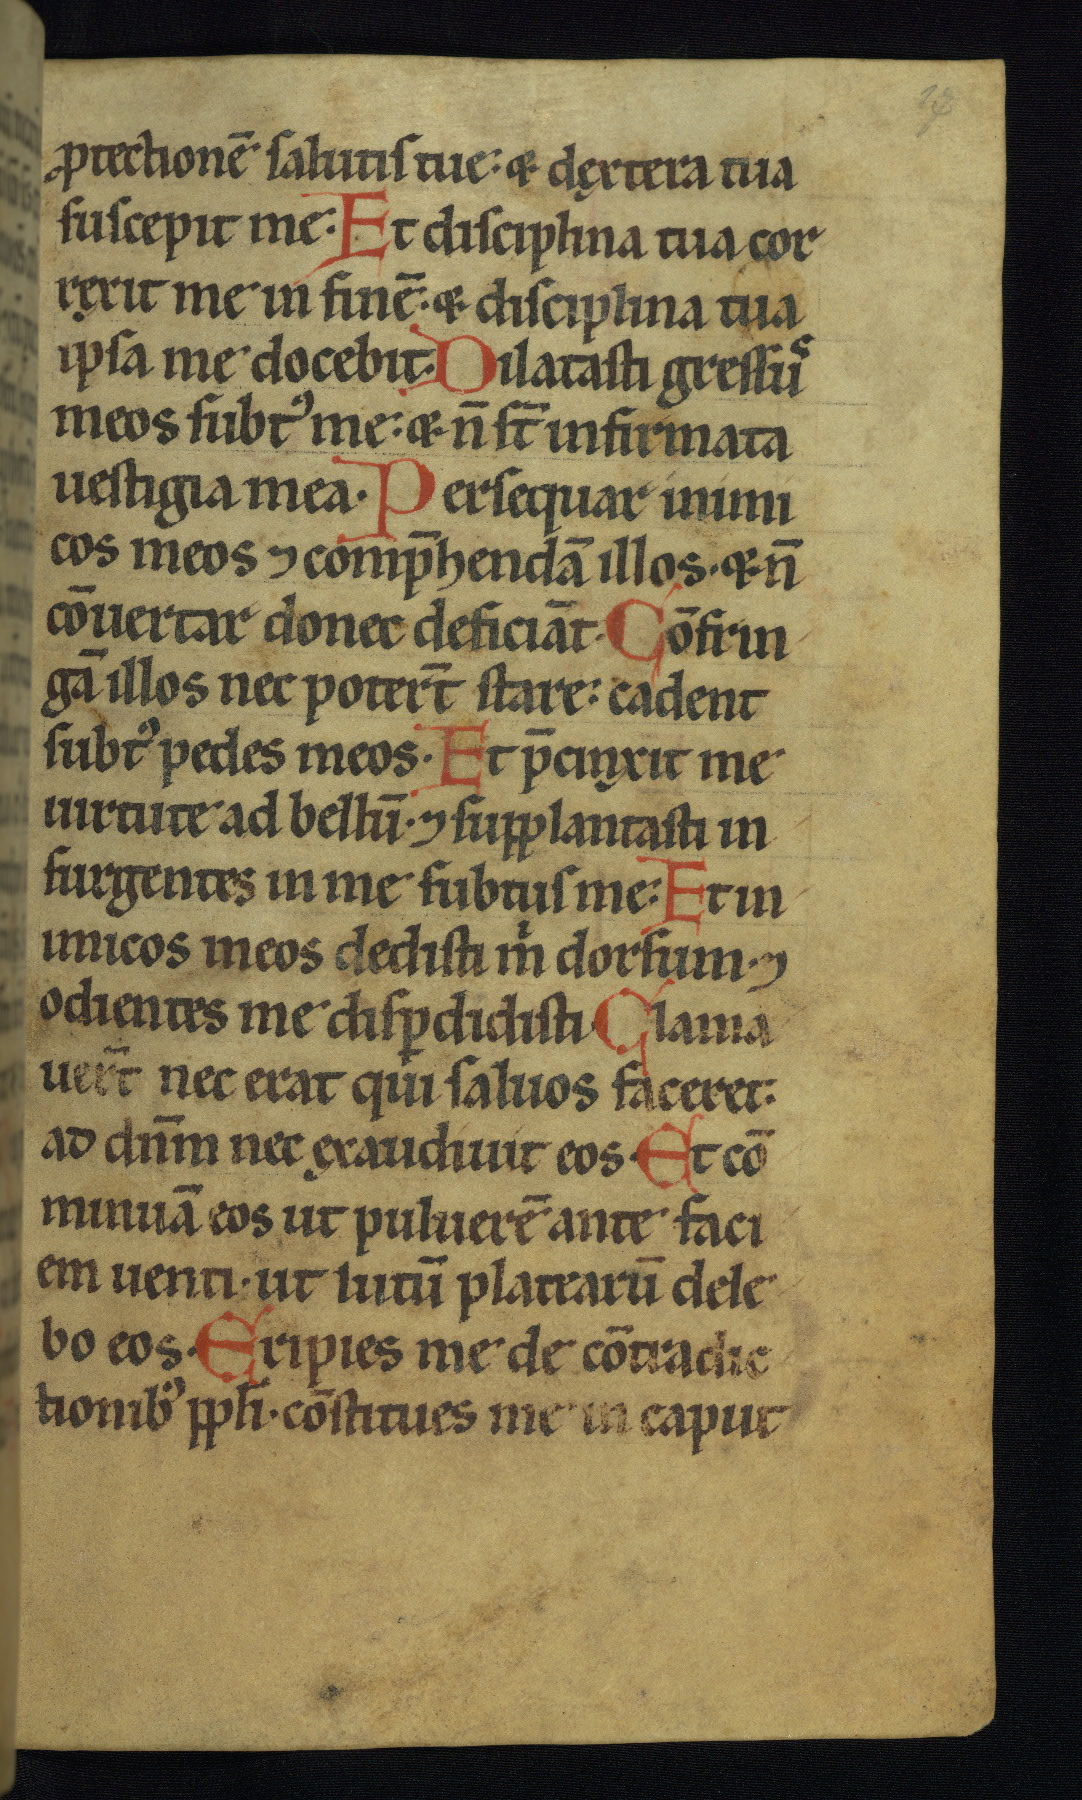 ꝓtectionē salutis tue: ⁊ dextera tua
suscepit me: Et disciplina tua cor
rexit me in finē: ⁊ disciplina tua
ipsa me docebit. Dilatasti gressus
meos subtꝰ me: ⁊ n̄ st̄ infirmata
uestigia mea. Persequar inimi
cos meos ⁊ comp̄hendā illos. ⁊ n̄
cōuertar donec deficiāt. Cōfrin
gā illos nec poter̄t stare: cadent
subtꝰ pedes meos. Et p̄cinxit me
uirtute ad bellū. ⁊ supplantasti in
surgentes in me subtus me: Et in
imicos meos dedisti m̍ dorsum. ⁊
odientes me disꝑdidisti. Clama
uer̄t nec erat qui saluos faceret:
ad dn̄m nec exaudiuit eos. Et cō
minuā eos ut puluerē ante faci
em uenti. ut lutū platearū dele
bo eos. Eripies me de cōtradic
tionibꝰ ppłi. cōstitues me in caput